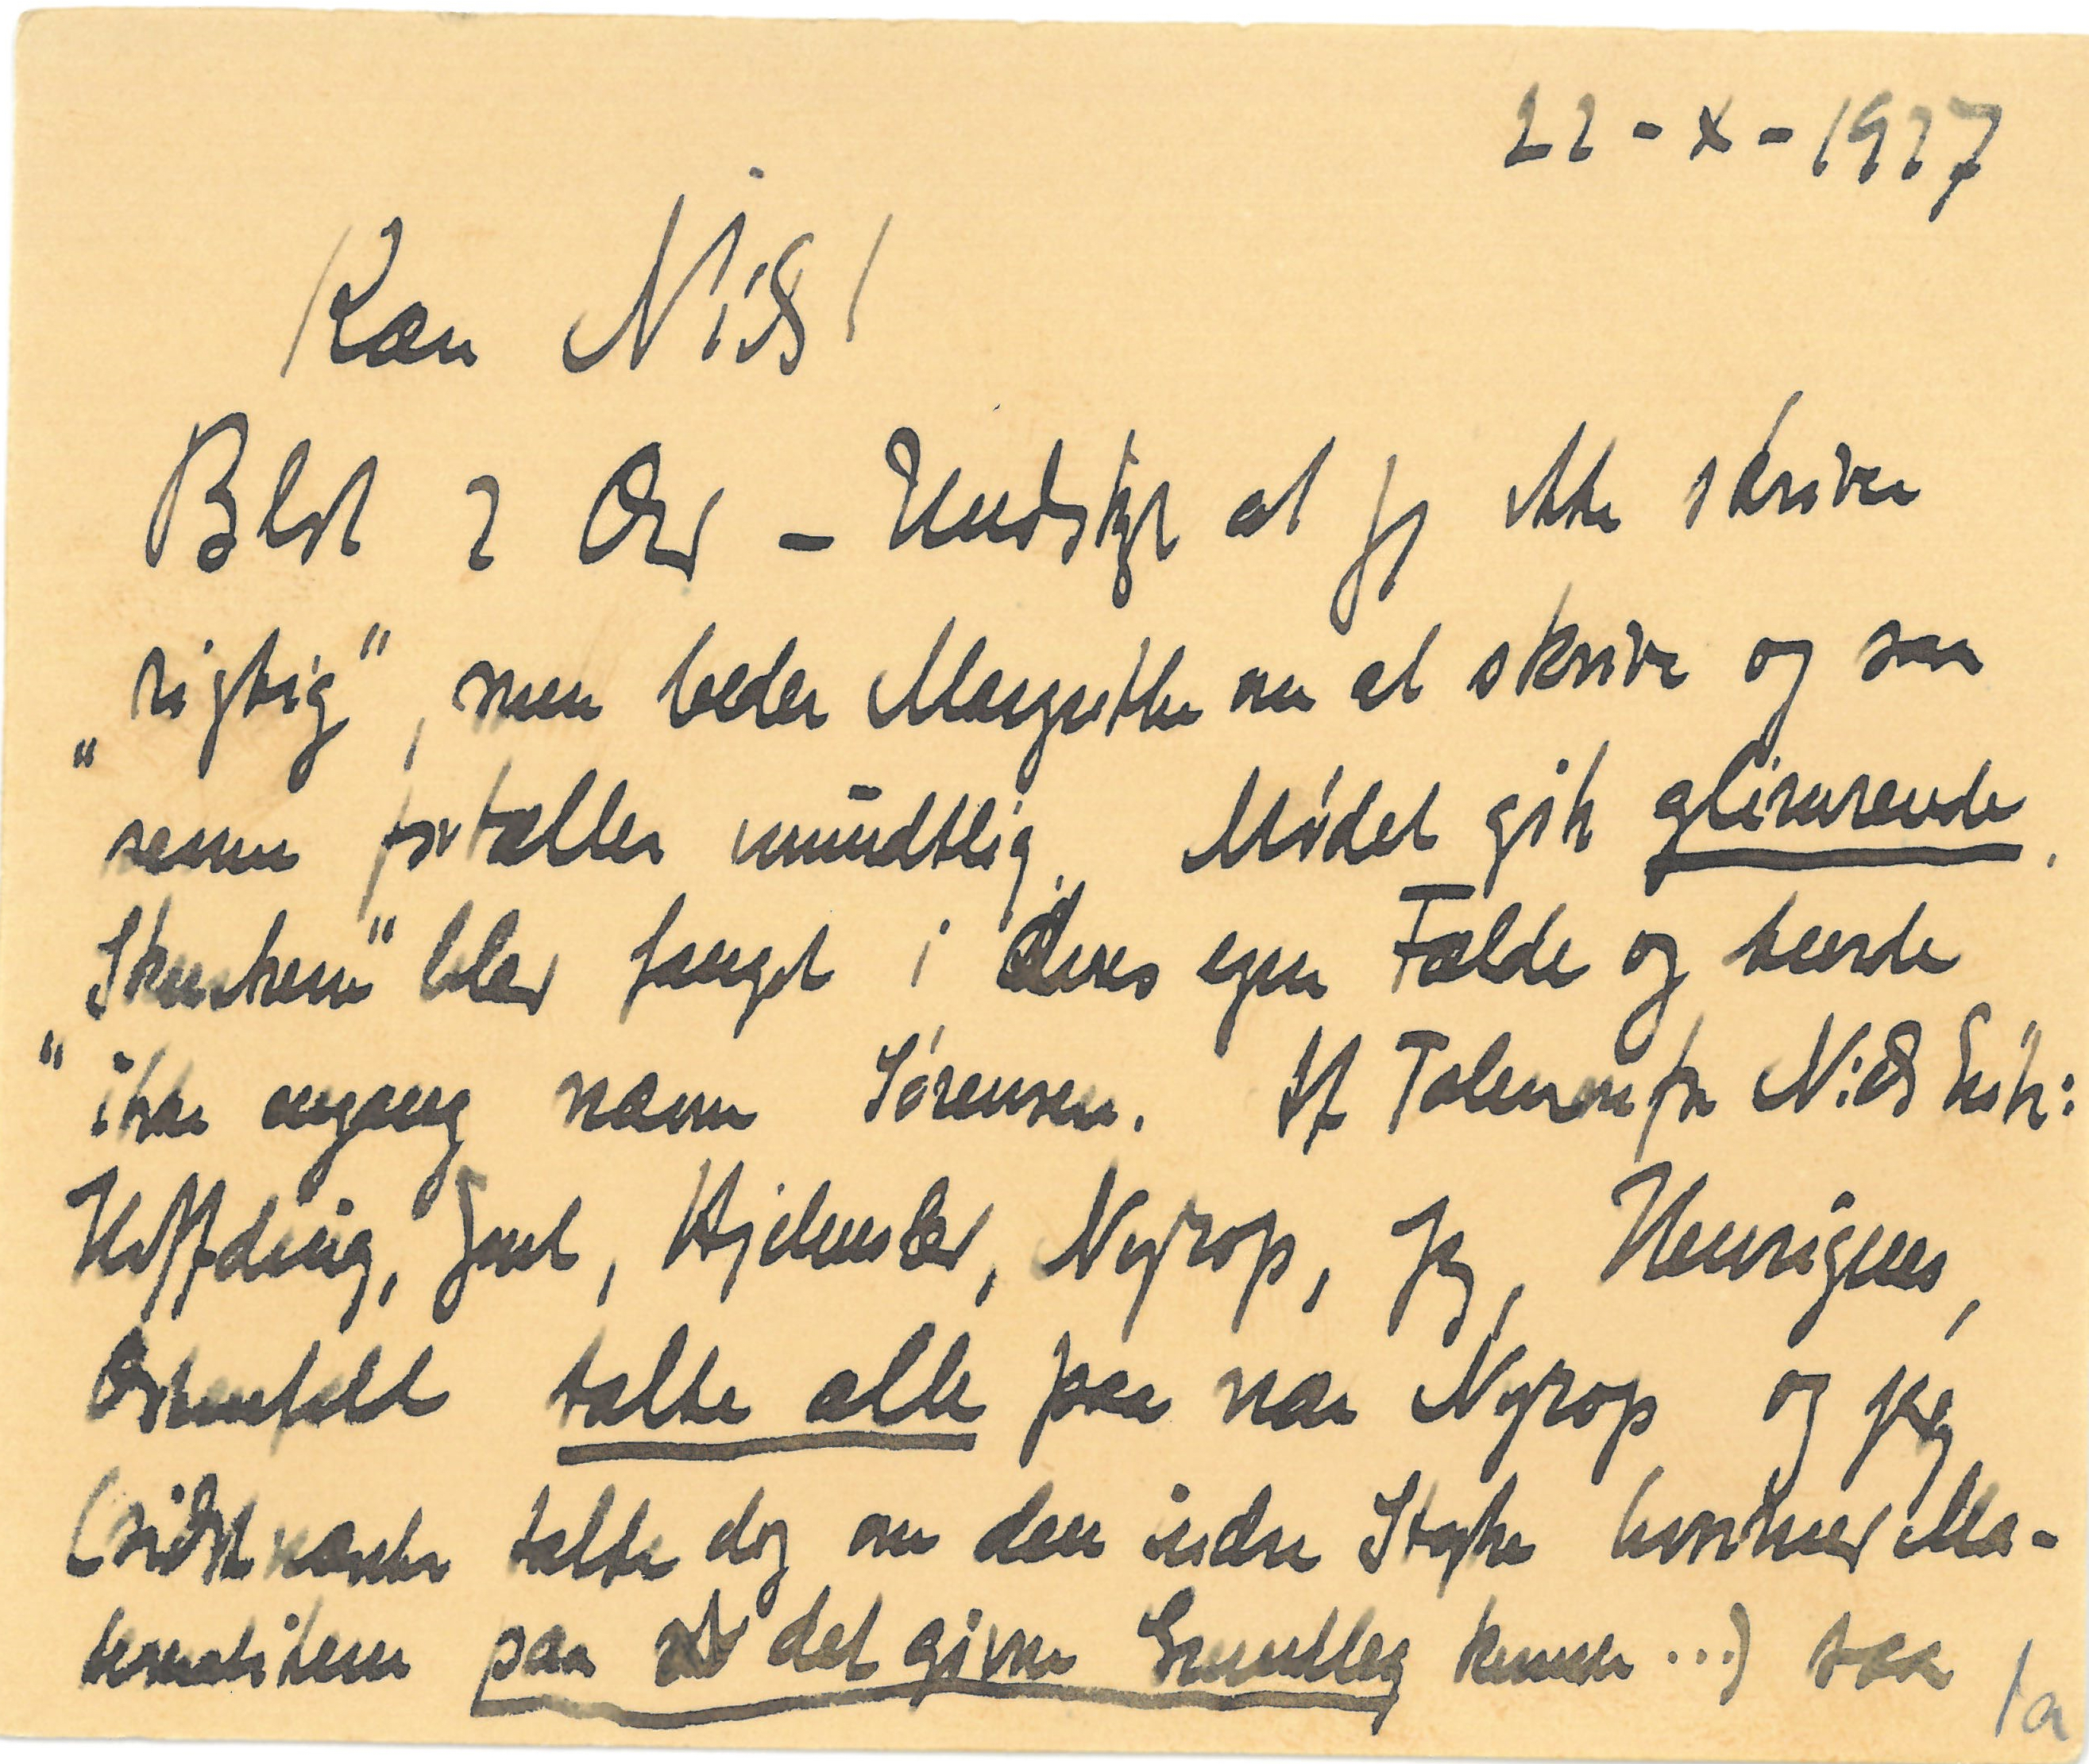 22-X-1927
Kære Niels!
Blot 2 Ord – Undskyld at jeg ikke skriver
„rigtig", men beder Margrethe om at skrive og saa
senere fortæller mundtlig. Mødet gik glimrende.
„Skurkene" blev fanget i deres egen Fælde og turde
ikke engang nævne Sørensen. Af Talerne for Niels Erik:
Høffding, Juel, Hjelmslev, Nyrop, Jeg, Henriques,
Ostenfeld talte alle paa nær Nyrop og jeg
(sidstnævnte talte dog om den indre Styrke hvormed Ma-
tematikken paa det givne Grundlag kunde ...) saa
1a